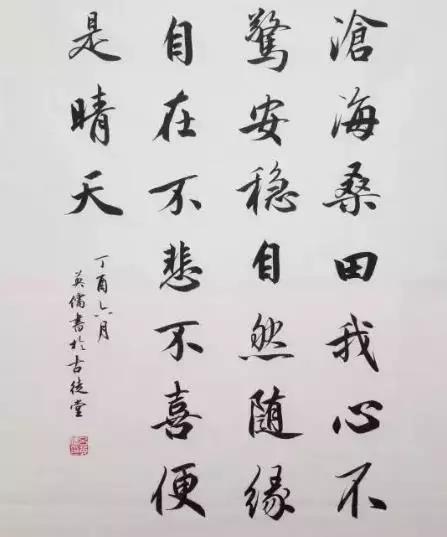 滄海桑田我心不
驚安穩自然随缘
自在不悲不喜便
是晴天
丁酉六月
英儒書於古徒堂